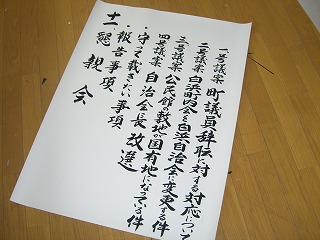 一号議案 町議員辞職に対する対応について
二号議案 白浜町内会を白浜自治会に変更する件
三号議案 公民館の敷地が国有地になっている件
四号議案 自治会長改選
・守って載きたい事項
・報告事項
十一懇親会